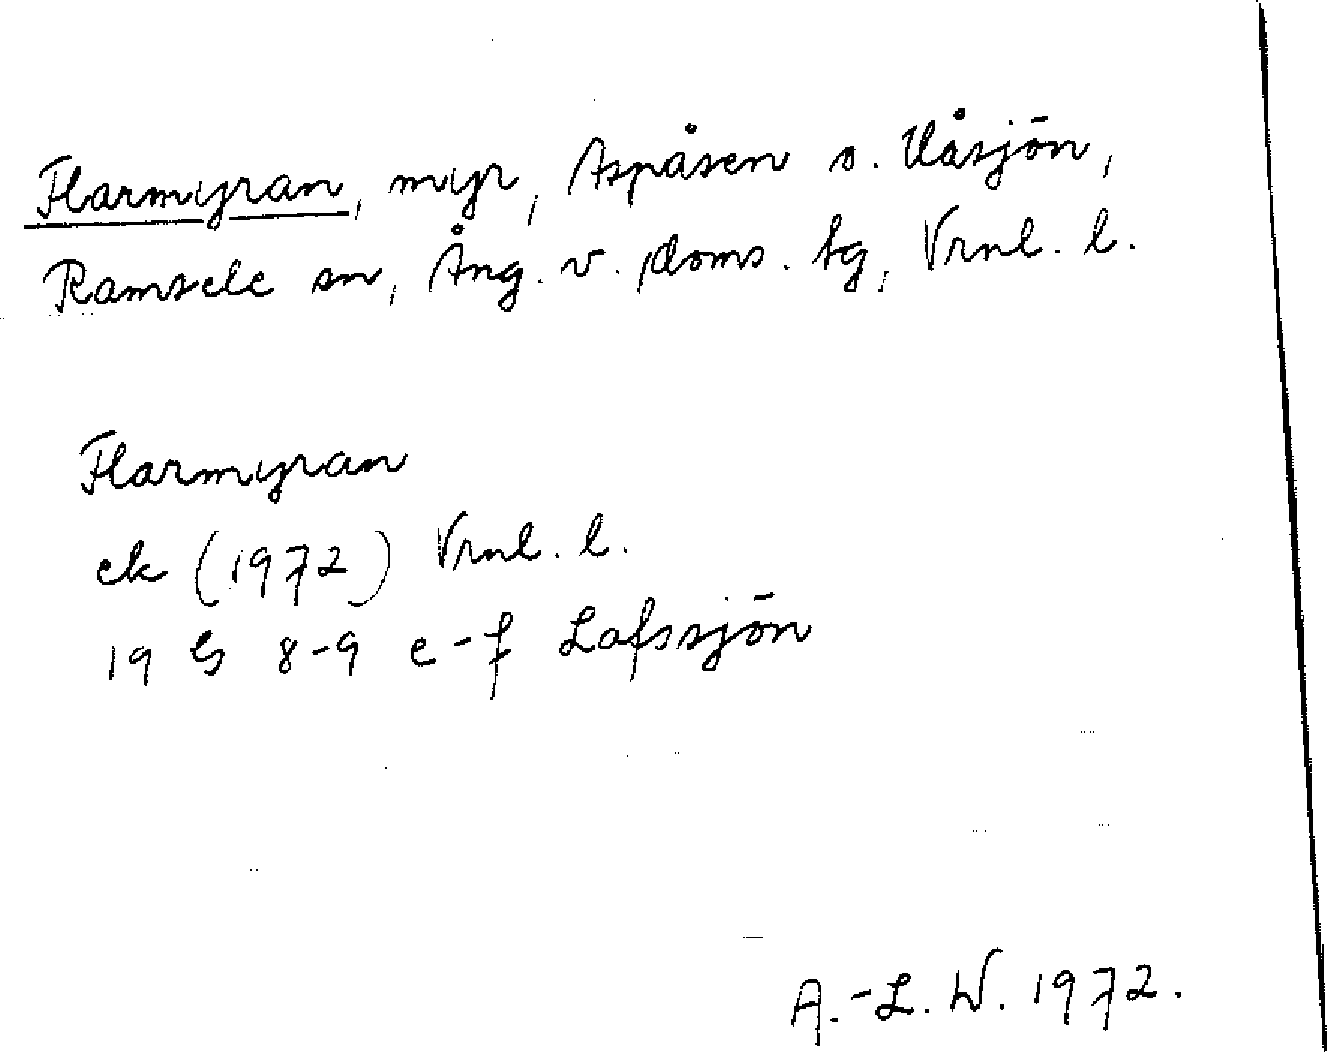 Flarmyran, myr, Aspåsen o. Uåsjön,
Ramsele sn, Ång. v. doms. tg, Vrnl. l.
Flarmyran
ek (1972) Vrnl. l.
19 G 8-9 e-f Lafssjön
A.-L. W. 1972.